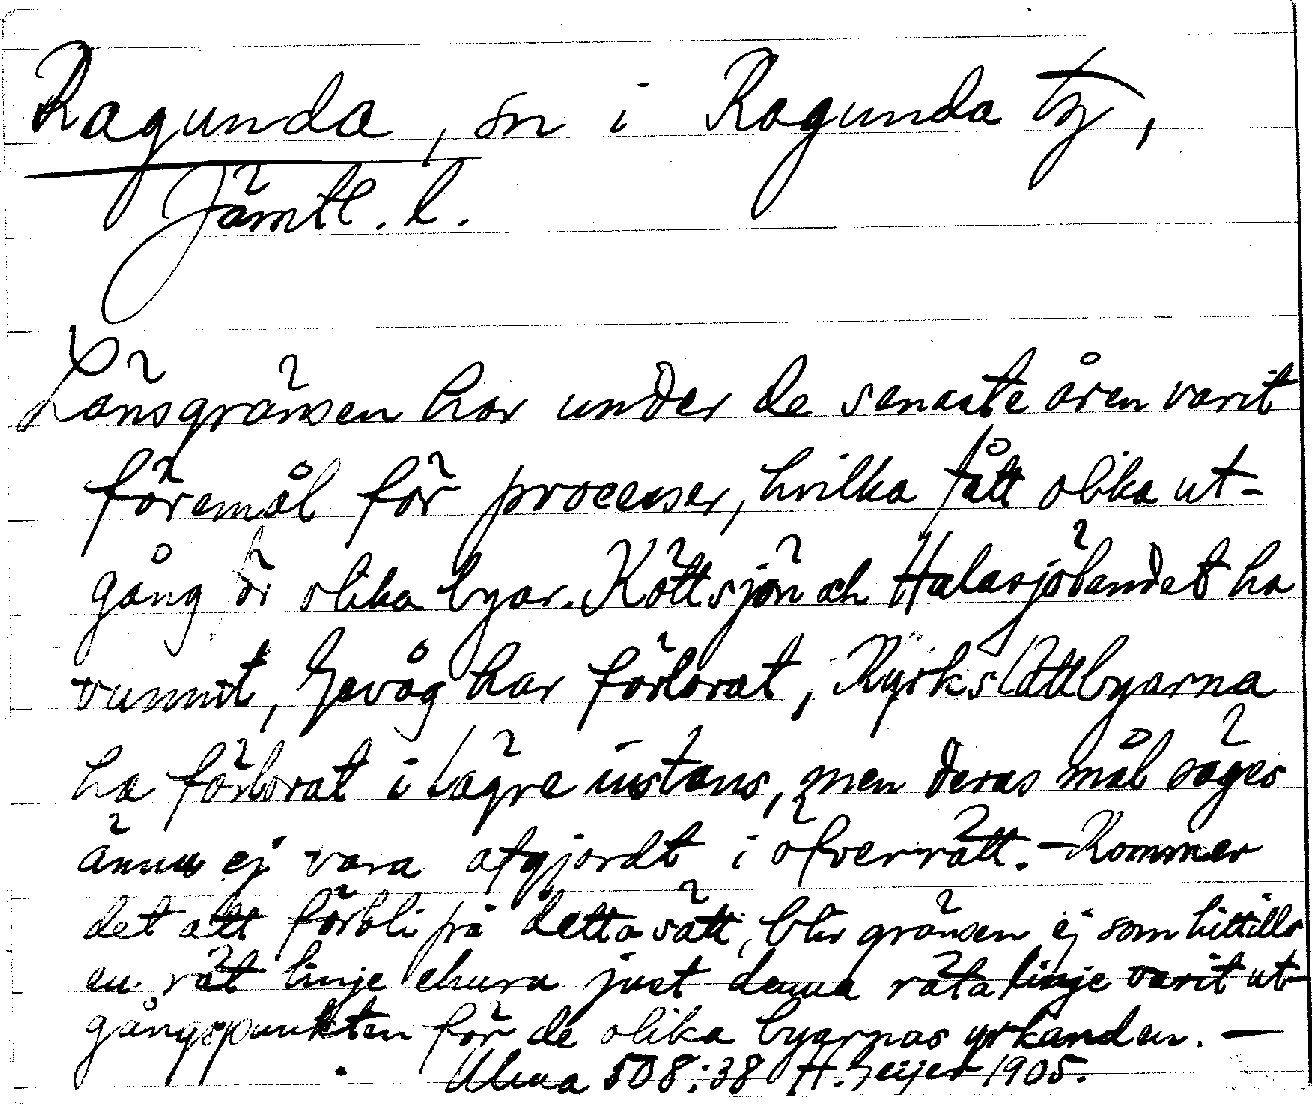 Ragunda, sn i Ragunda tg,
Jämtl. l.
Länsgränsen har under de senaste åren varit
föremål för processer, hvilka fått olika ut-
gång för olika byar. Köttsjön och Halasjölandet ha
vunnit, Gevåg har förlorat, Kyrkslåttbyarna
ha förlorat i lägre instans, men deras mål säges
ännu ej vara afgjordt i öfverrätt. - Kommer
det att förbli på detta sätt, blir gränsen ej som hittills
en rät linje ehuru just denna räta linje varit ut-
gångspunkten för de olika byarnas yrkanden. —
Ulma 508:38 H. Geijer 1905.